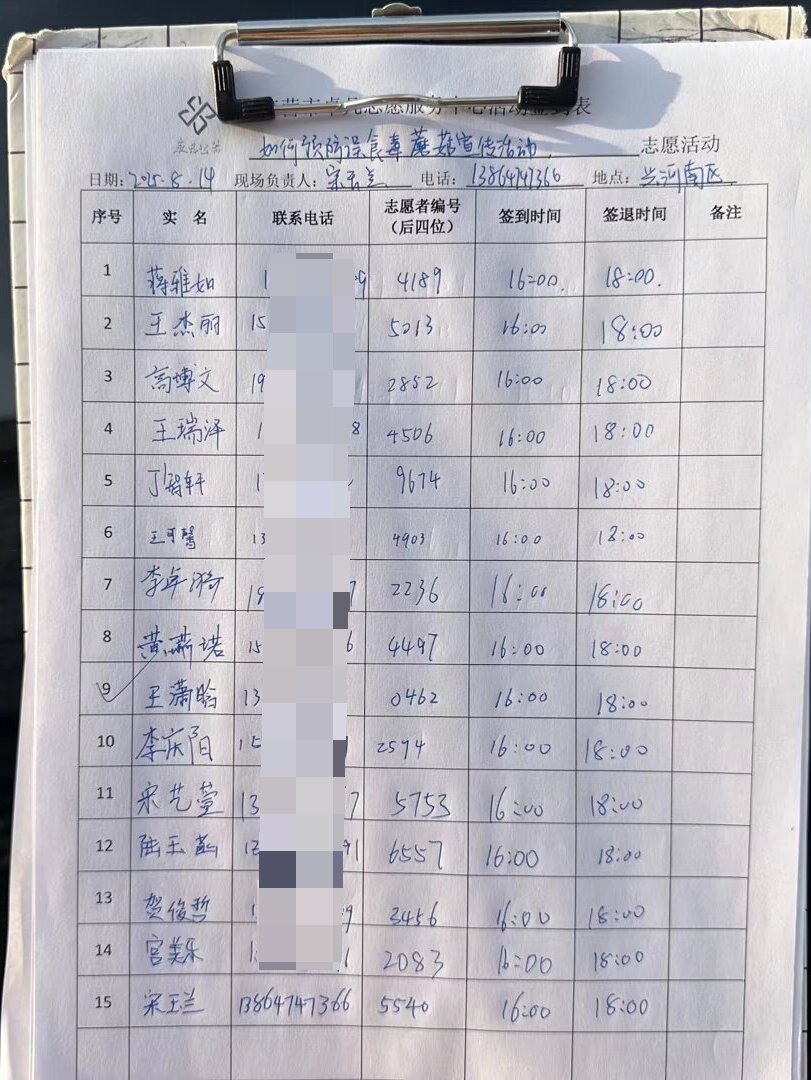 志愿服务中心活动签到表
如何预防误食毒蘑菇宣传活动 志愿活动
日期:2025.8.14 现场负责人:宋玉兰 电话:13864747366 地点:兰河南区
序号 实 名 联系电话 志愿者编号(后四位) 签到时间 签退时间 备注
1 蒋雅如 4189 16:00. 18:00.
2 王杰丽 15 5013 16:00 18:00
3 高博文 19 2852 16:00 18:00
4 王瑞泽 1 8 4506 16:00 18:00
5 丁智轩 1 9674 16:00 18:00
6 王可馨 13 4903 16:00 18:00
7 李卓漪 18 7 2236 16:00 18:00
8 黄萧诺 15 6 4497 16:00 18:00
9 王潇晗 13 0462 16:00 18:00
10 李庆阳 15 2594 16:00 18:00
11 宋艺萱 13 7 5753 16:00 18:00
12 陆玉菡 91 6557 16:00 18:00
13 贺俊哲 1 9 3456 16:00 18:00
14 宫美乐 1 2083 16:00 18:00
15 宋玉兰 13864747366 5540 16:00 18:00